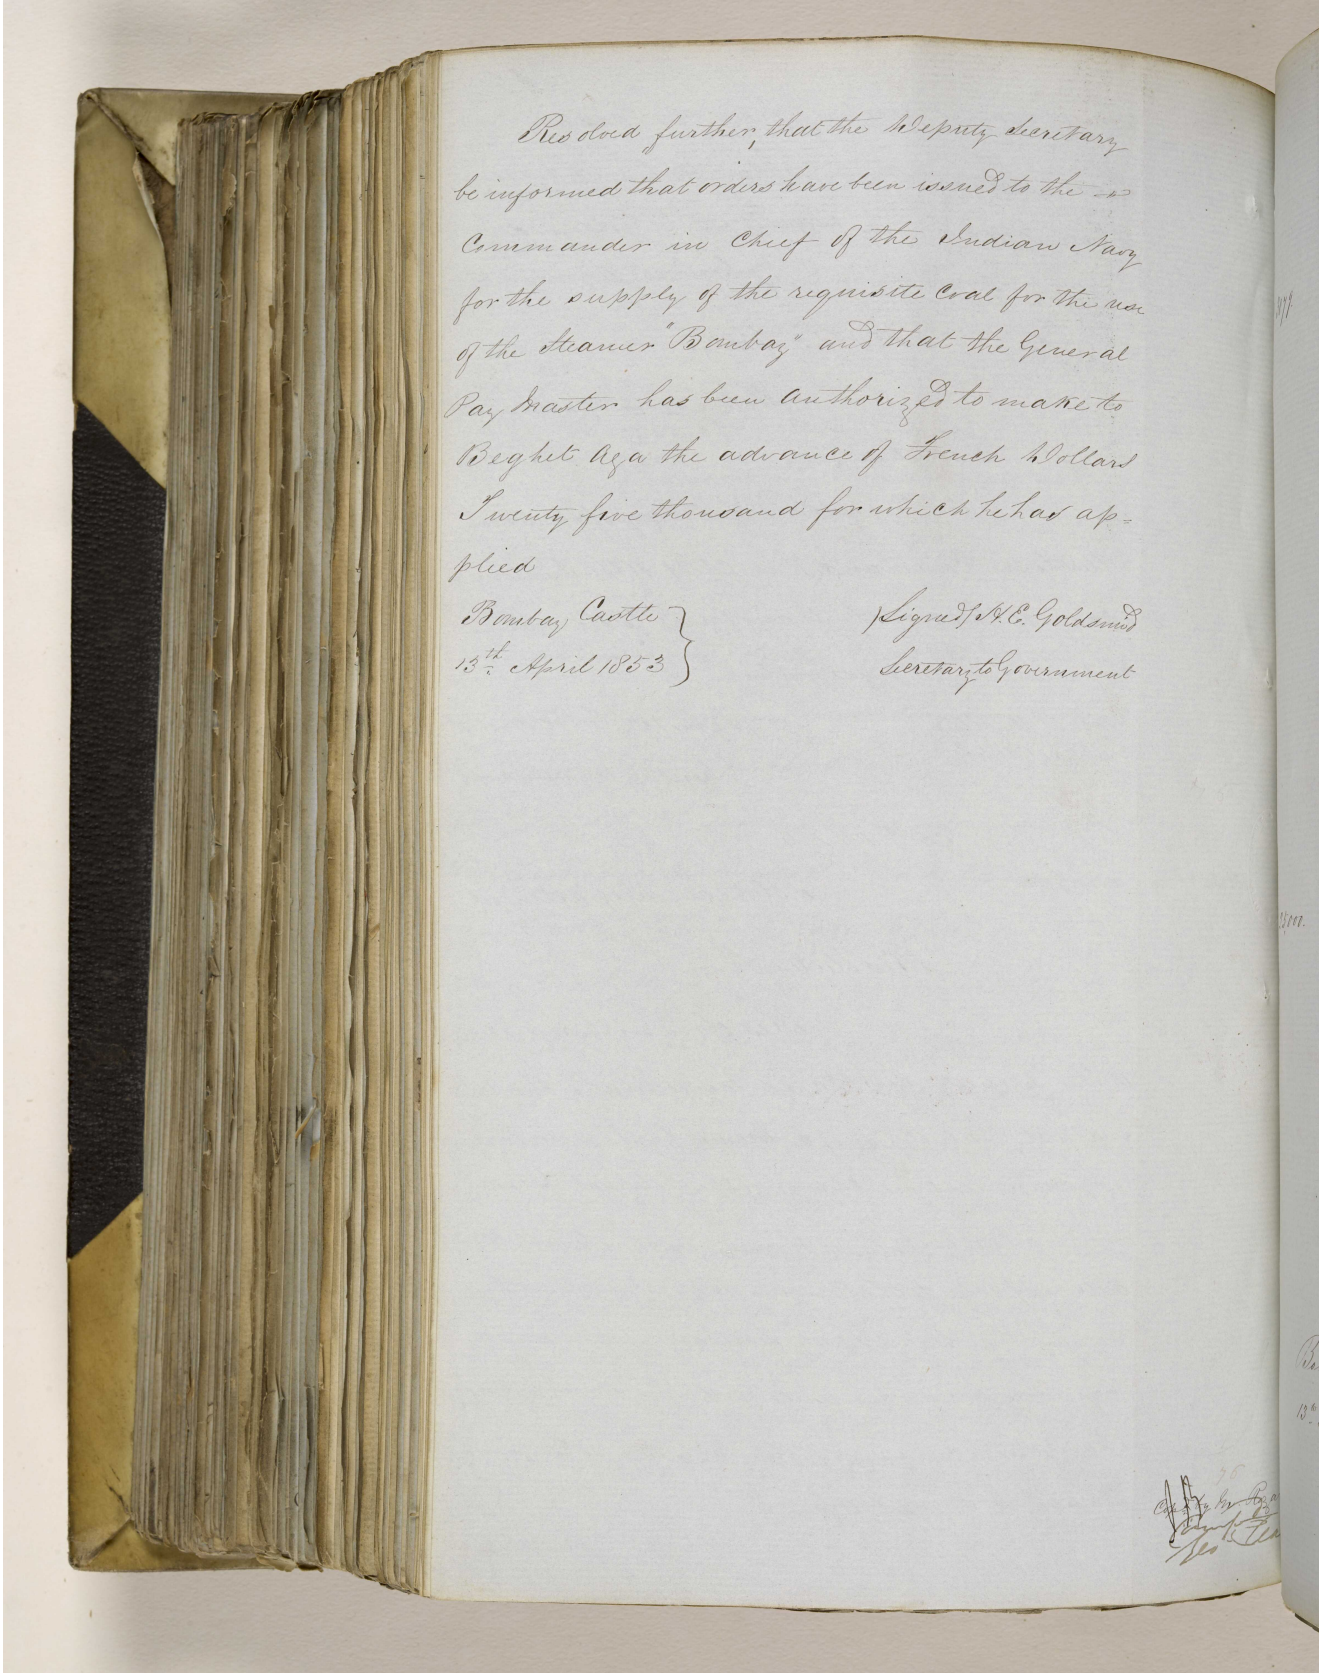 Resolved further, that the Deputy Secretary
be informed that orders have been issued to the
Commander in Chief of the Indian Navy
for the supply of the requisite Coal for the use
of the Steamer "Bombay" and that the General
Pay Master has been authorized to make to
Beghet Aga the advance of French Dollars
Twenty five thousand for which he has ap=
plied
Bombay Castle
13th April 1853
(Signed) H. E. Goldsmid
Secretary to Government
25,000.
13th